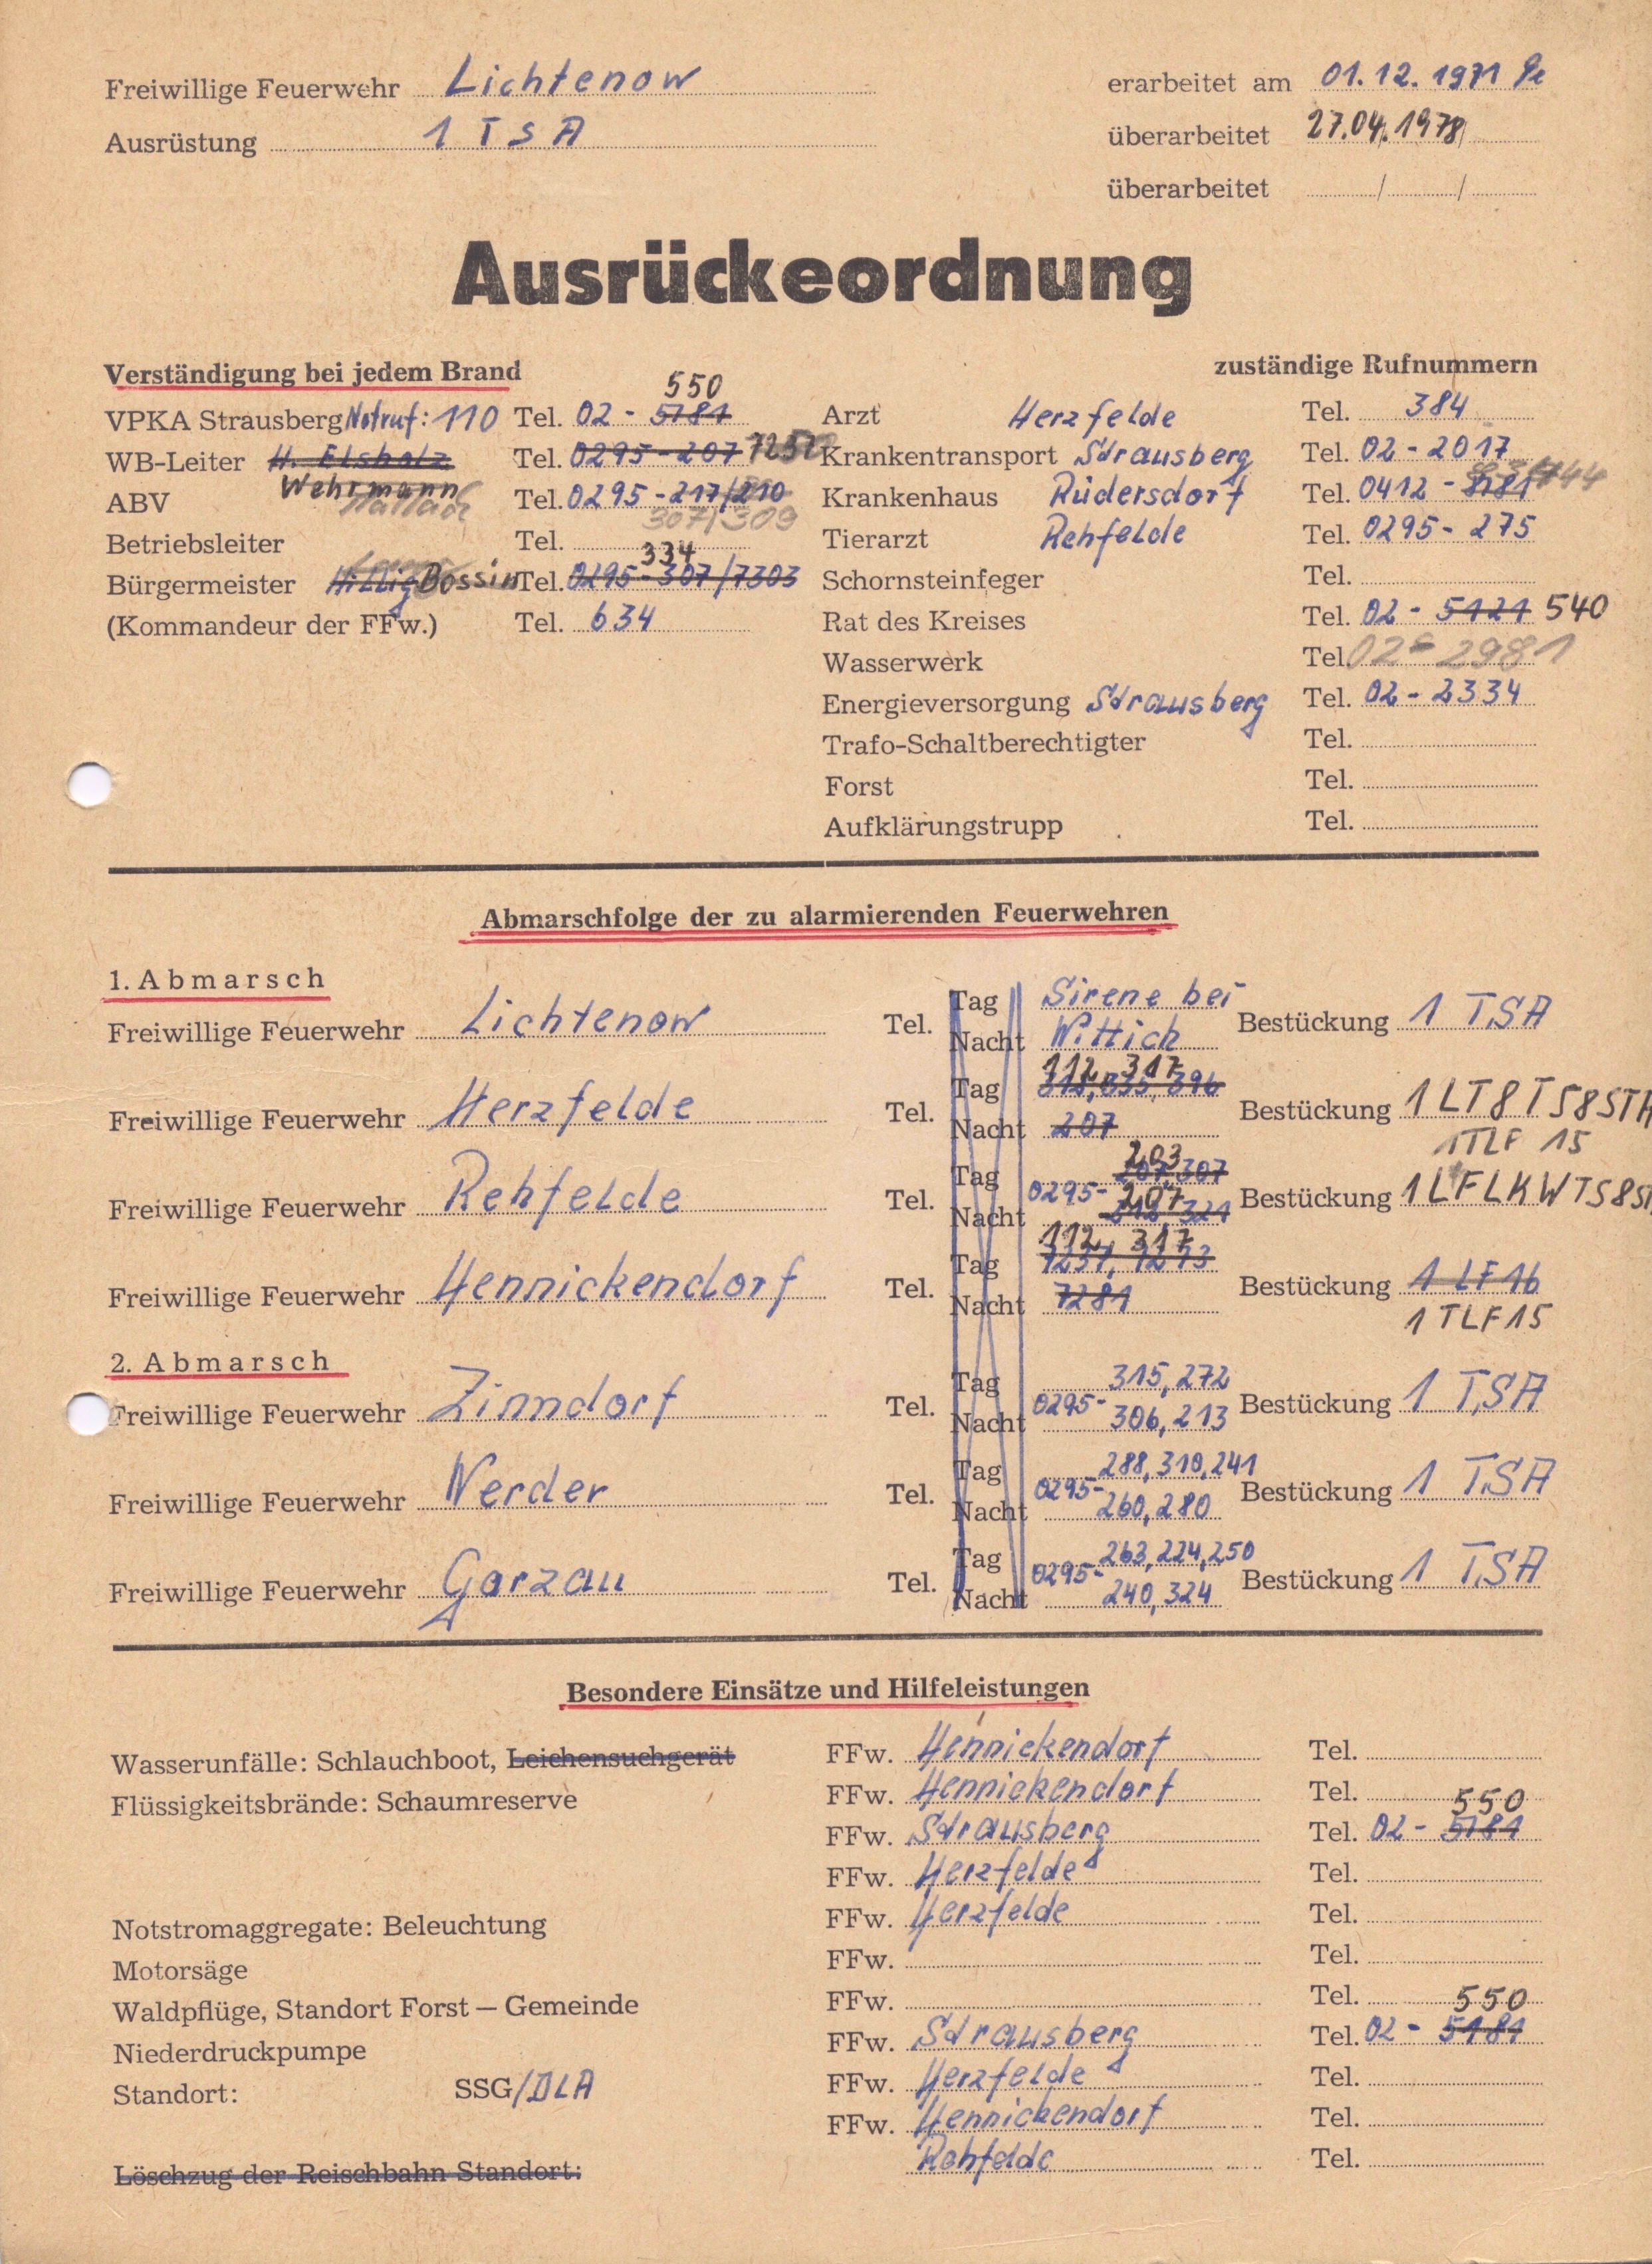 Freiwillige Feuerwehr Lichtenow
erarbeitet am 01.12.1971
Ausrüstung 1 TSA
überarbeitet 27.04.1978
überarbeitet / /
Ausrückeordnung
Verständigung bei jedem Brand
zuständige Rufnummern
550
VPKA Strausberg Notruf: 110 Tel. 02 - 5181
Arzt Herzfelde Tel. 384
WB-Leiter H. Elsholz Tel. 0295 - 207
Krankentransport Strausberg Tel. 02 - 2017
Wehrmann
ABV Tel. 0295 - 217/210
Krankenhaus Rüdersdorf Tel. 0412 - 8181
307/309
Betriebsleiter Tel.
Tierarzt Rehfelde Tel. 0295 - 275
334
Bürgermeister Hillig Bossin Tel. 0295 - 307/7303
Schornsteinfeger Tel.
(Kommandeur der FFw.) Tel. 634
Rat des Kreises Tel. 02 - 5121 540
Wasserwerk Tel. 02 - 2981
Energieversorgung Strausberg Tel. 02 - 2334
Trafo-Schaltberechtigter Tel.
Forst Tel.
Aufklärungstrupp Tel.
Abmarschfolge der zu alarmierenden Feuerwehren
1. Abmarsch
Tag Sirene bei
Freiwillige Feuerwehr Lichtenow Tel. Bestückung 1 TSA
Nacht Wittich
112, 317
Tag 396
Freiwillige Feuerwehr Herzfelde Tel. Bestückung 1 LT8TS8STA
Nacht 207
1 TLF 15
203
Tag 207 307
Freiwillige Feuerwehr Rehfelde Tel. 0295- Bestückung 1 LFLKWTS8ST
207
Nacht 321
112, 317
Tag 7237, 7273
Freiwillige Feuerwehr Hennickendorf Tel. Bestückung 1 LF 16
Nacht 7281
1 TLF 15
2. Abmarsch
Tag 315, 272
Freiwillige Feuerwehr Zinndorf Tel. 0295- Bestückung 1 TSA
Nacht 306, 213
Tag 288, 310, 241
Freiwillige Feuerwehr Werder Tel. 0295- Bestückung 1 TSA
Nacht 260, 280
Tag 263, 224, 250
Freiwillige Feuerwehr Garzau Tel. 0295- Bestückung 1 TSA
Nacht 240, 324
Besondere Einsätze und Hilfeleistungen
Wasserunfälle: Schlauchboot, Leichensuchgerät FFw. Hennickendorf Tel.
Flüssigkeitsbrände: Schaumreserve FFw. Hennickendorf Tel.
550
FFw. Strausberg Tel. 02 - 5181
FFw. Herzfelde Tel.
Notstromaggregate: Beleuchtung FFw. Herzfelde Tel.
Motorsäge FFw. Tel.
Waldpflüge, Standort Forst — Gemeinde FFw. Tel.
550
Niederdruckpumpe FFw. Strausberg Tel. 02 - 5181
Standort: SSG/DLA FFw. Herzfelde Tel.
FFw. Hennickendorf Tel.
Löschzug der Reischbahn Standort: Rehfelde Tel.